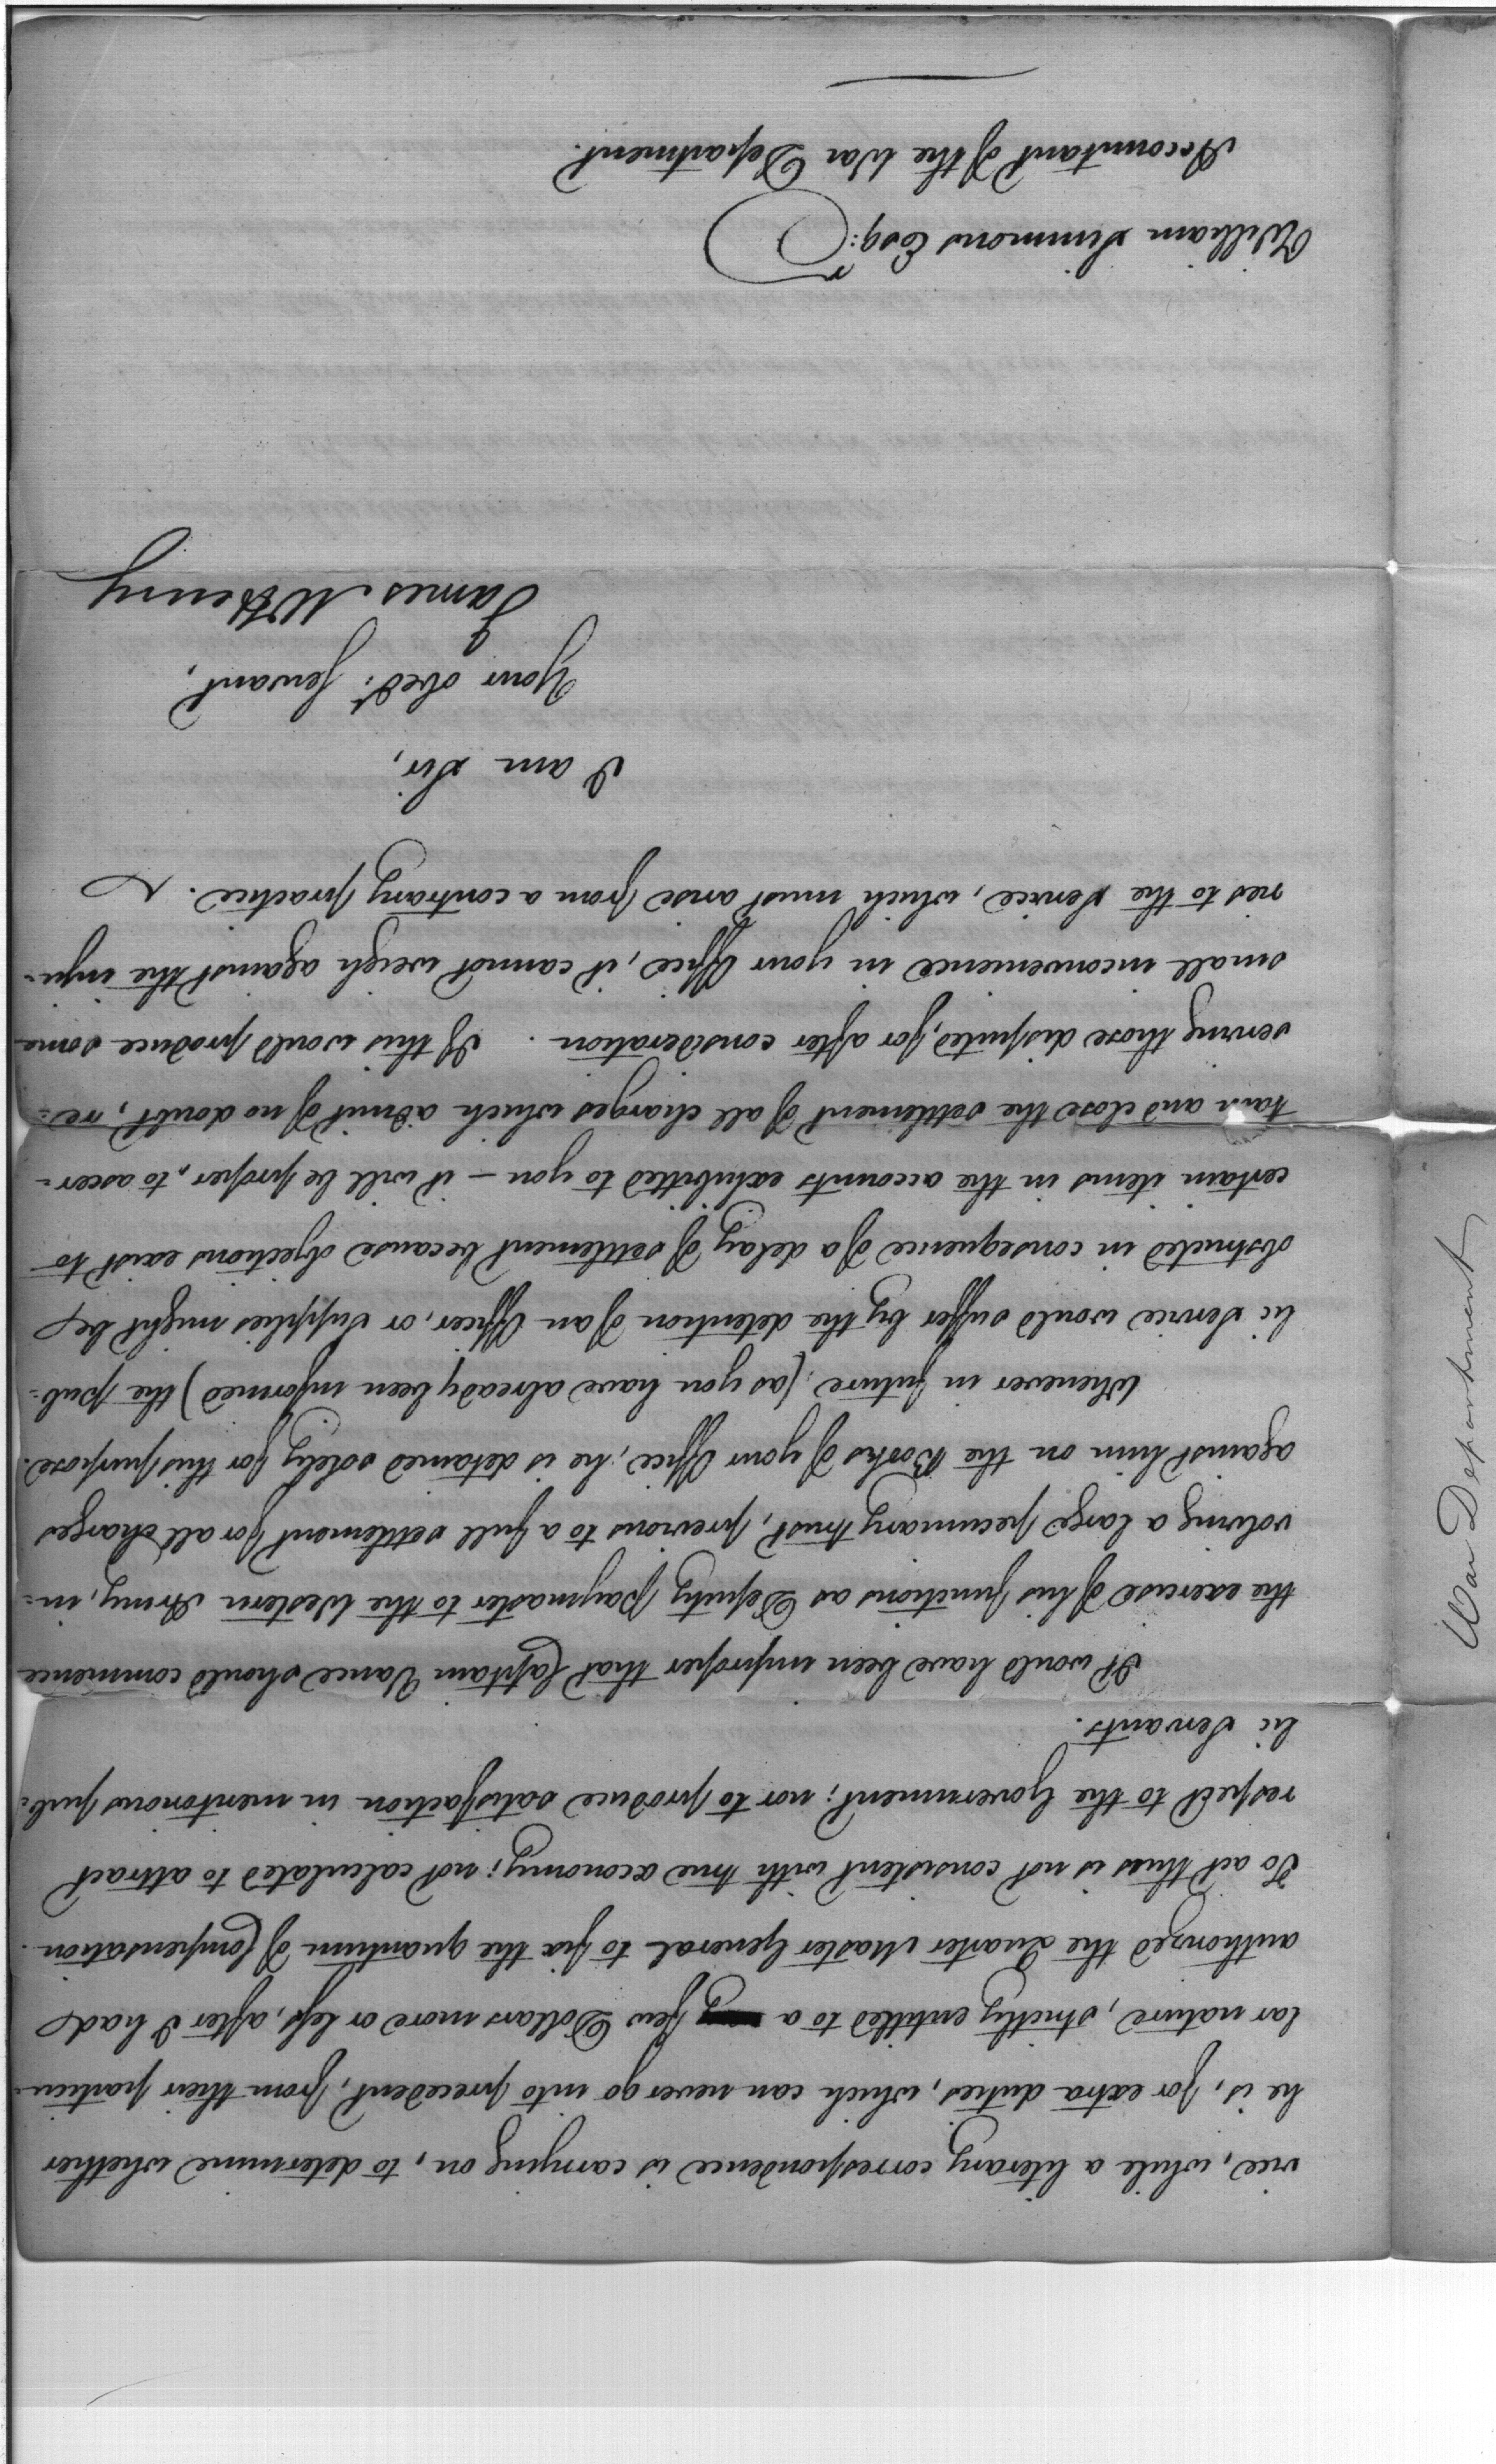 vice, while a literary correspondence is carrying on, to determine whether
he is, for extra duties, which can never go into precedent, from their particu=
lar nature, strictly entitled to a few Dollars more or less, after I had
authorized the Quarter Master General to fix the quantum of Compensation.
To act thus is not consistent with true œconomy; not calculated to attract
respect to the Government; nor to produce satisfaction in meritorious pub=
lic Servants.
It would have been improper that Captain Vance should commence
the exercise of his functions as Deputy Paymaster to the Western Army, in=
volving a large pecuniary trust, previous to a full settlement for all charges
against him on the Books of your Office; he is detained solely for this purpose.
Whenever in future (as you have already been informed) the pub=
lic Service would suffer by the detention of an Officer, or supplies might be
obstructed in consequence of a delay of settlement because objections exist to
certain items in the accounts exhibitted to you — it will be proper, to ascer=
tain and close the settlement of all charges which admit of no doubt, re=
serving those disputed, for after consideration. If this would produce some
small inconvenience in your Office, it cannot weigh against the inju=
ries to the Service, which must arise from a contrary practice.
I am Sir,
Your obedt. Servant,
James McHenry
William Simmons Esqr:
Accountant of the War Department.
War Department